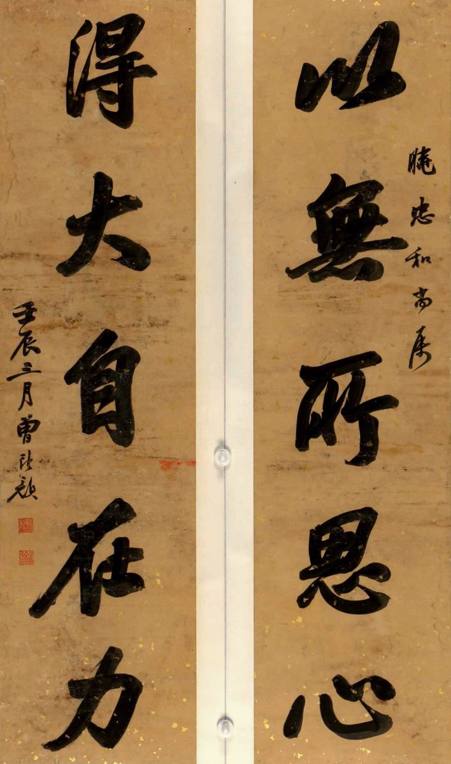 忠和尚屬
以無所思心
得大自在力
壬辰三月曾